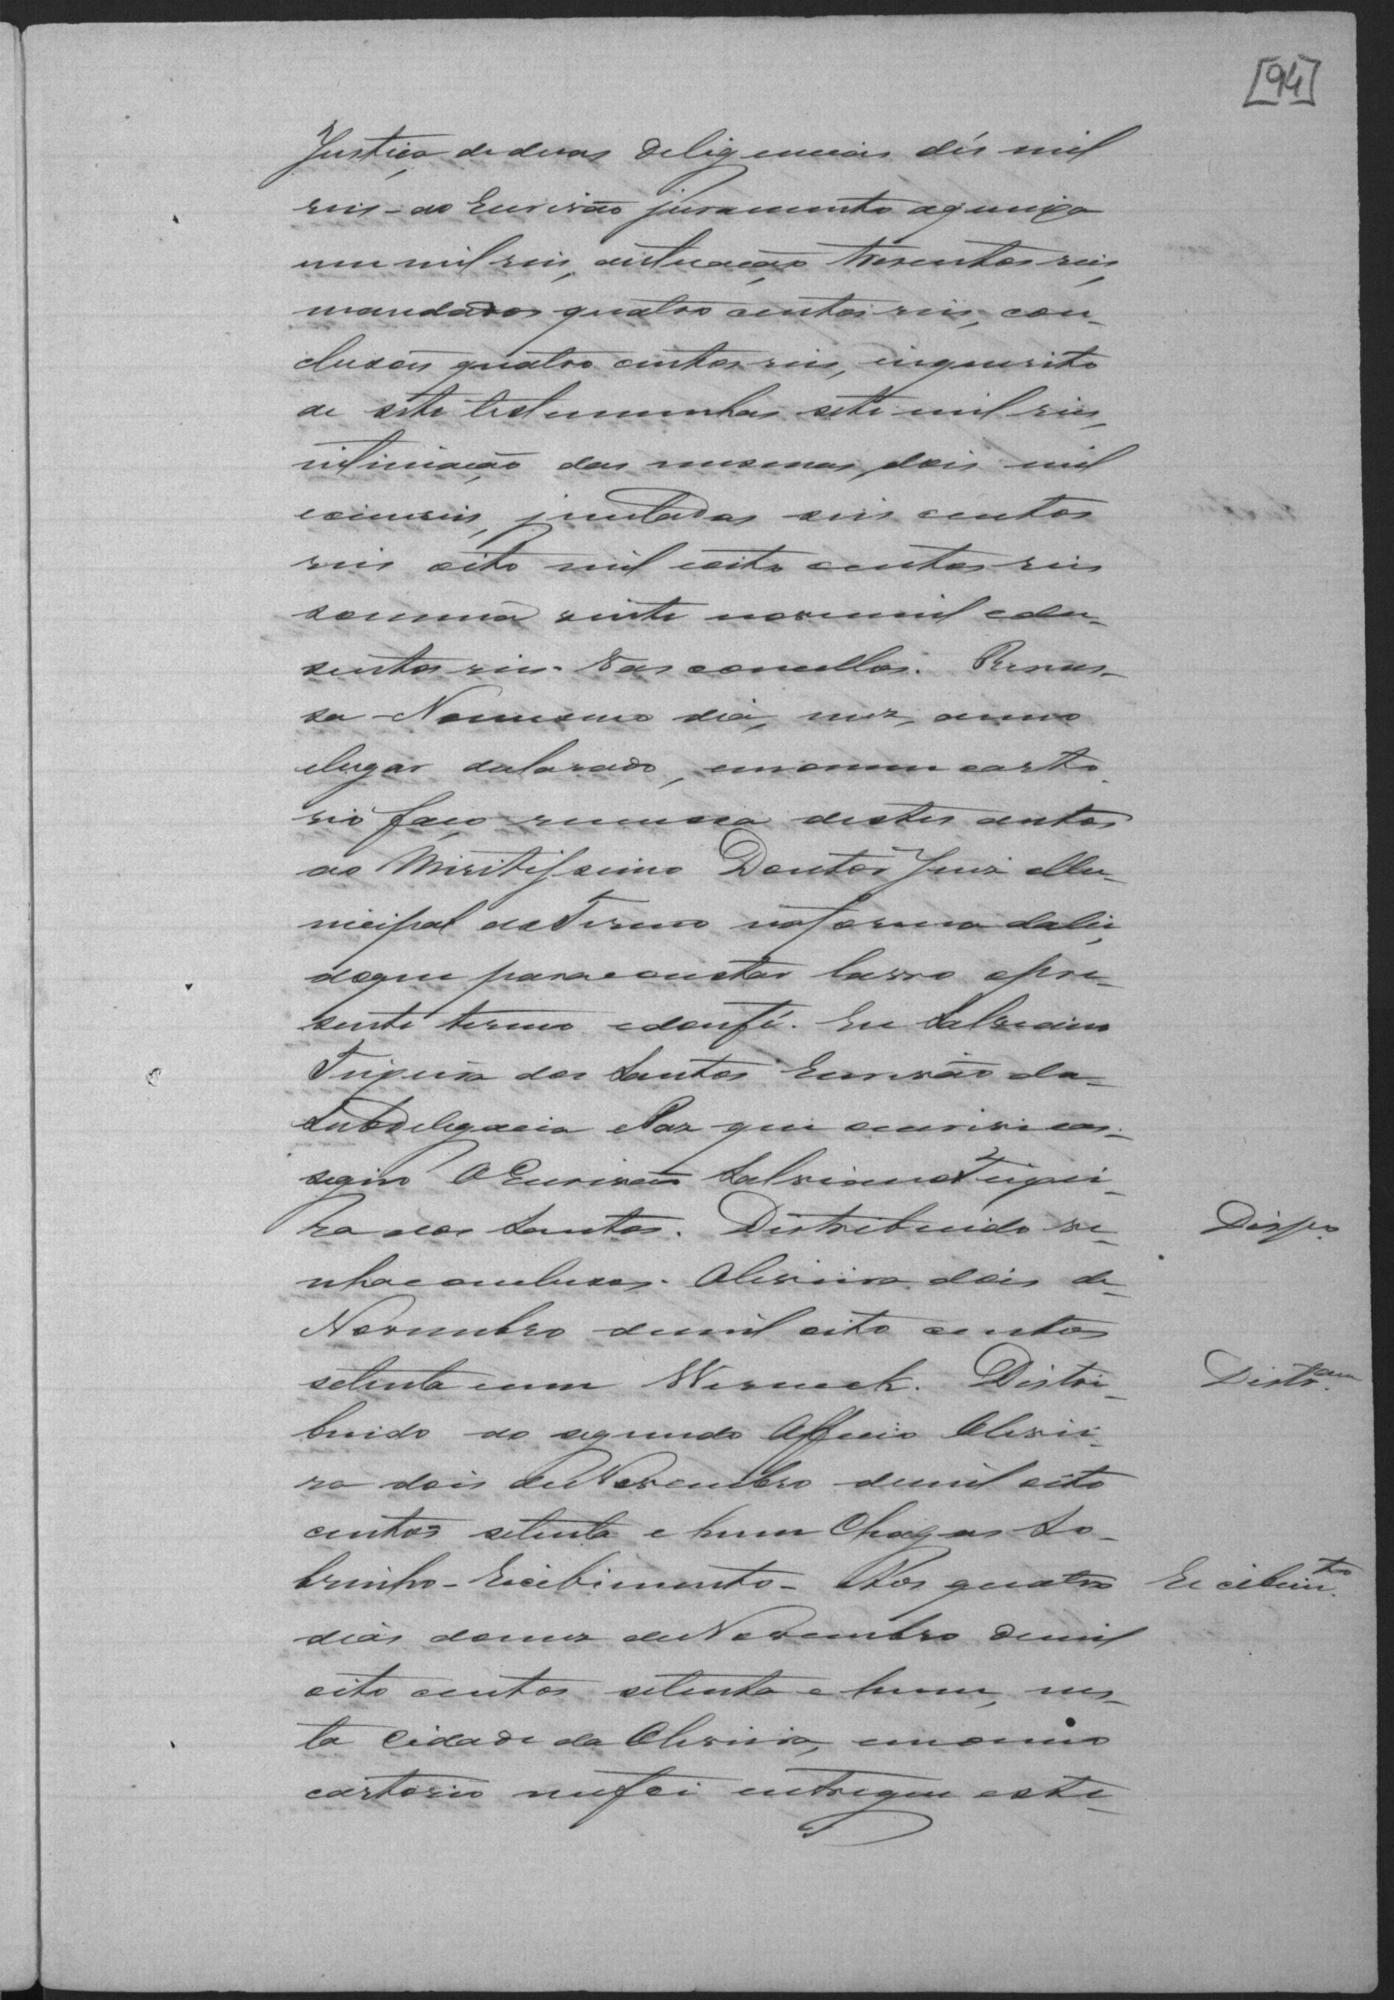 [94]
Justiça de duas deligencias dés mil
reis - ao Escrivão juramento a queixa
um mil reis, autuação tresentos reis,
mandados quatro centos reis, con-
clusões quatro centos reis, inquerito
de sete testemunhas sete mil reis,
intimação das mesmas, dois mil
e cem reis, juntadas seis centos
reis oito mil e oito centos reis
somma vinte nove mil e du-
sentos reis. Vasconcellos. Remes-
sa - No mesmo dia, mez, anno
e lugar declarado, em o meu carto-
rio faço remessa destes autos
ao Miritissimo Doutor Juiz Mu-
nicipal do Termo na forma da lei,
do que para constar lavro o pre-
sente termo e dou fé. Eu Salviano
Teixeira dos Santos Escrivão da
Subdelegacia e Paz que escrivi e as-
signo O Escrivão Salviano Teixei-
ra dos Santos. Distribuido ve-
Desp.º
nha conclusos. Oliveira dois de
Novembro de mil oito centos
setenta e um Werneck. Distri-
Distr.am
buido ao segundo Officio Olivei-
ra dois de Novembro de mil oito
centos setenta e hum Chagas So-
brinho - Recibimento - Aos quatro
Recibim.to
dias do mez de Novembro de mil
oito centos setenta e hum, nes-
ta Cidade da Oliveira, em o meu
cartorio me foi entregue este-